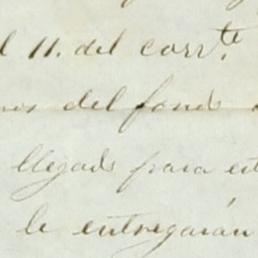 l 11. del corr.te
nos del fondo
llegado para est
le entregarán